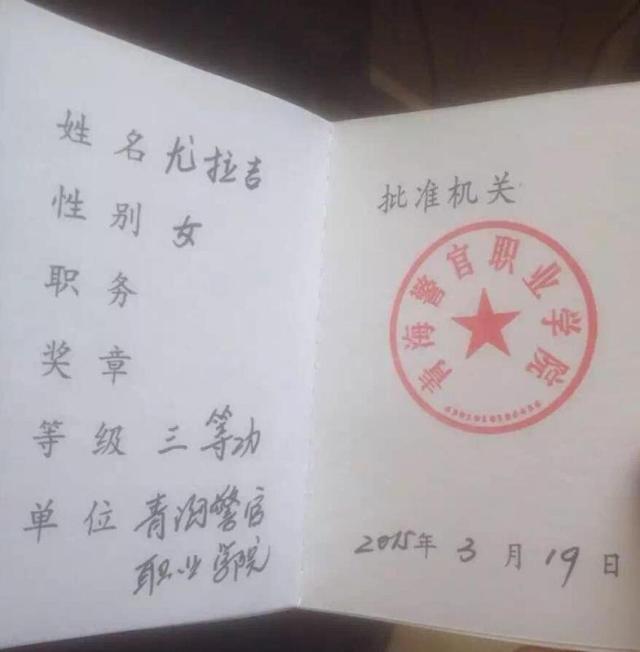 姓名尤拉吉
性别女
职务
奖章
等级三等功
单位青海警官
职业学院
批准机关
青海警官职业学院
2015年3月19日